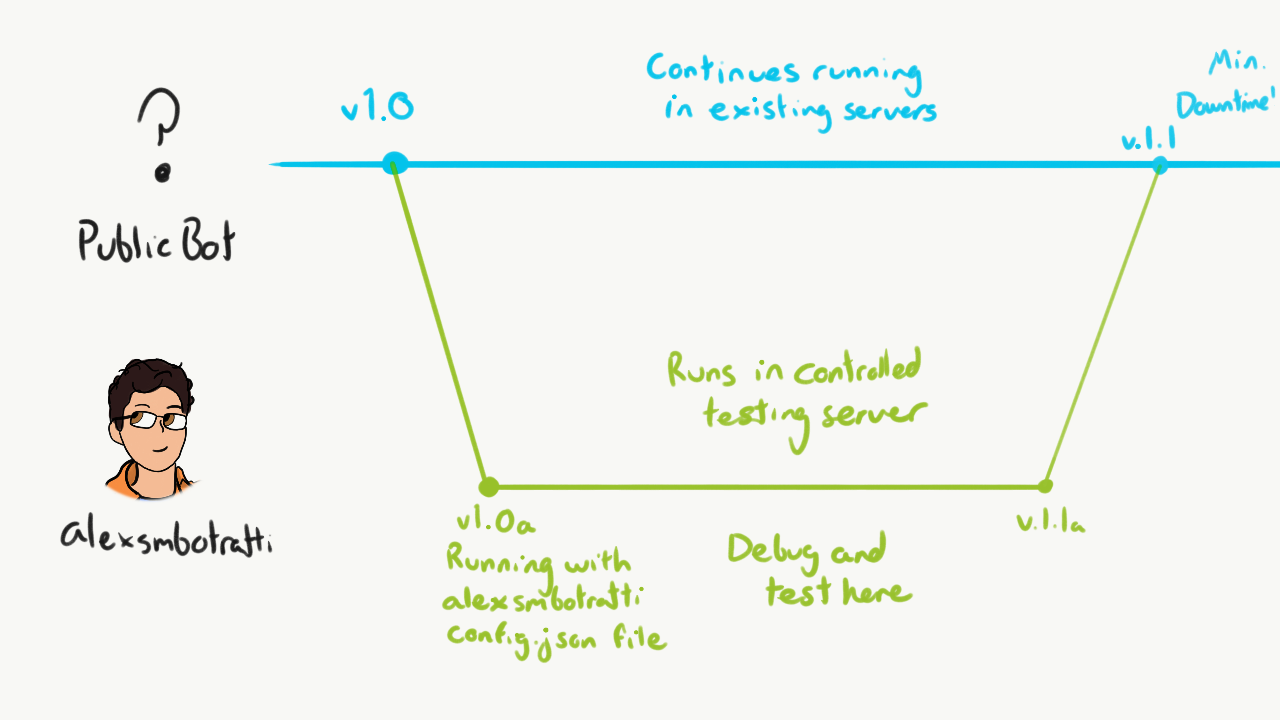 Continues running
in existing servers
Min.
Downtime'
v1.0
v.1.1
?
Public Bot
Runs in controlled
testing server
alexsmbotratti
v1.0a
Running with
alexsmbotratti
config.json file
Debug and
test here
v.1.1a